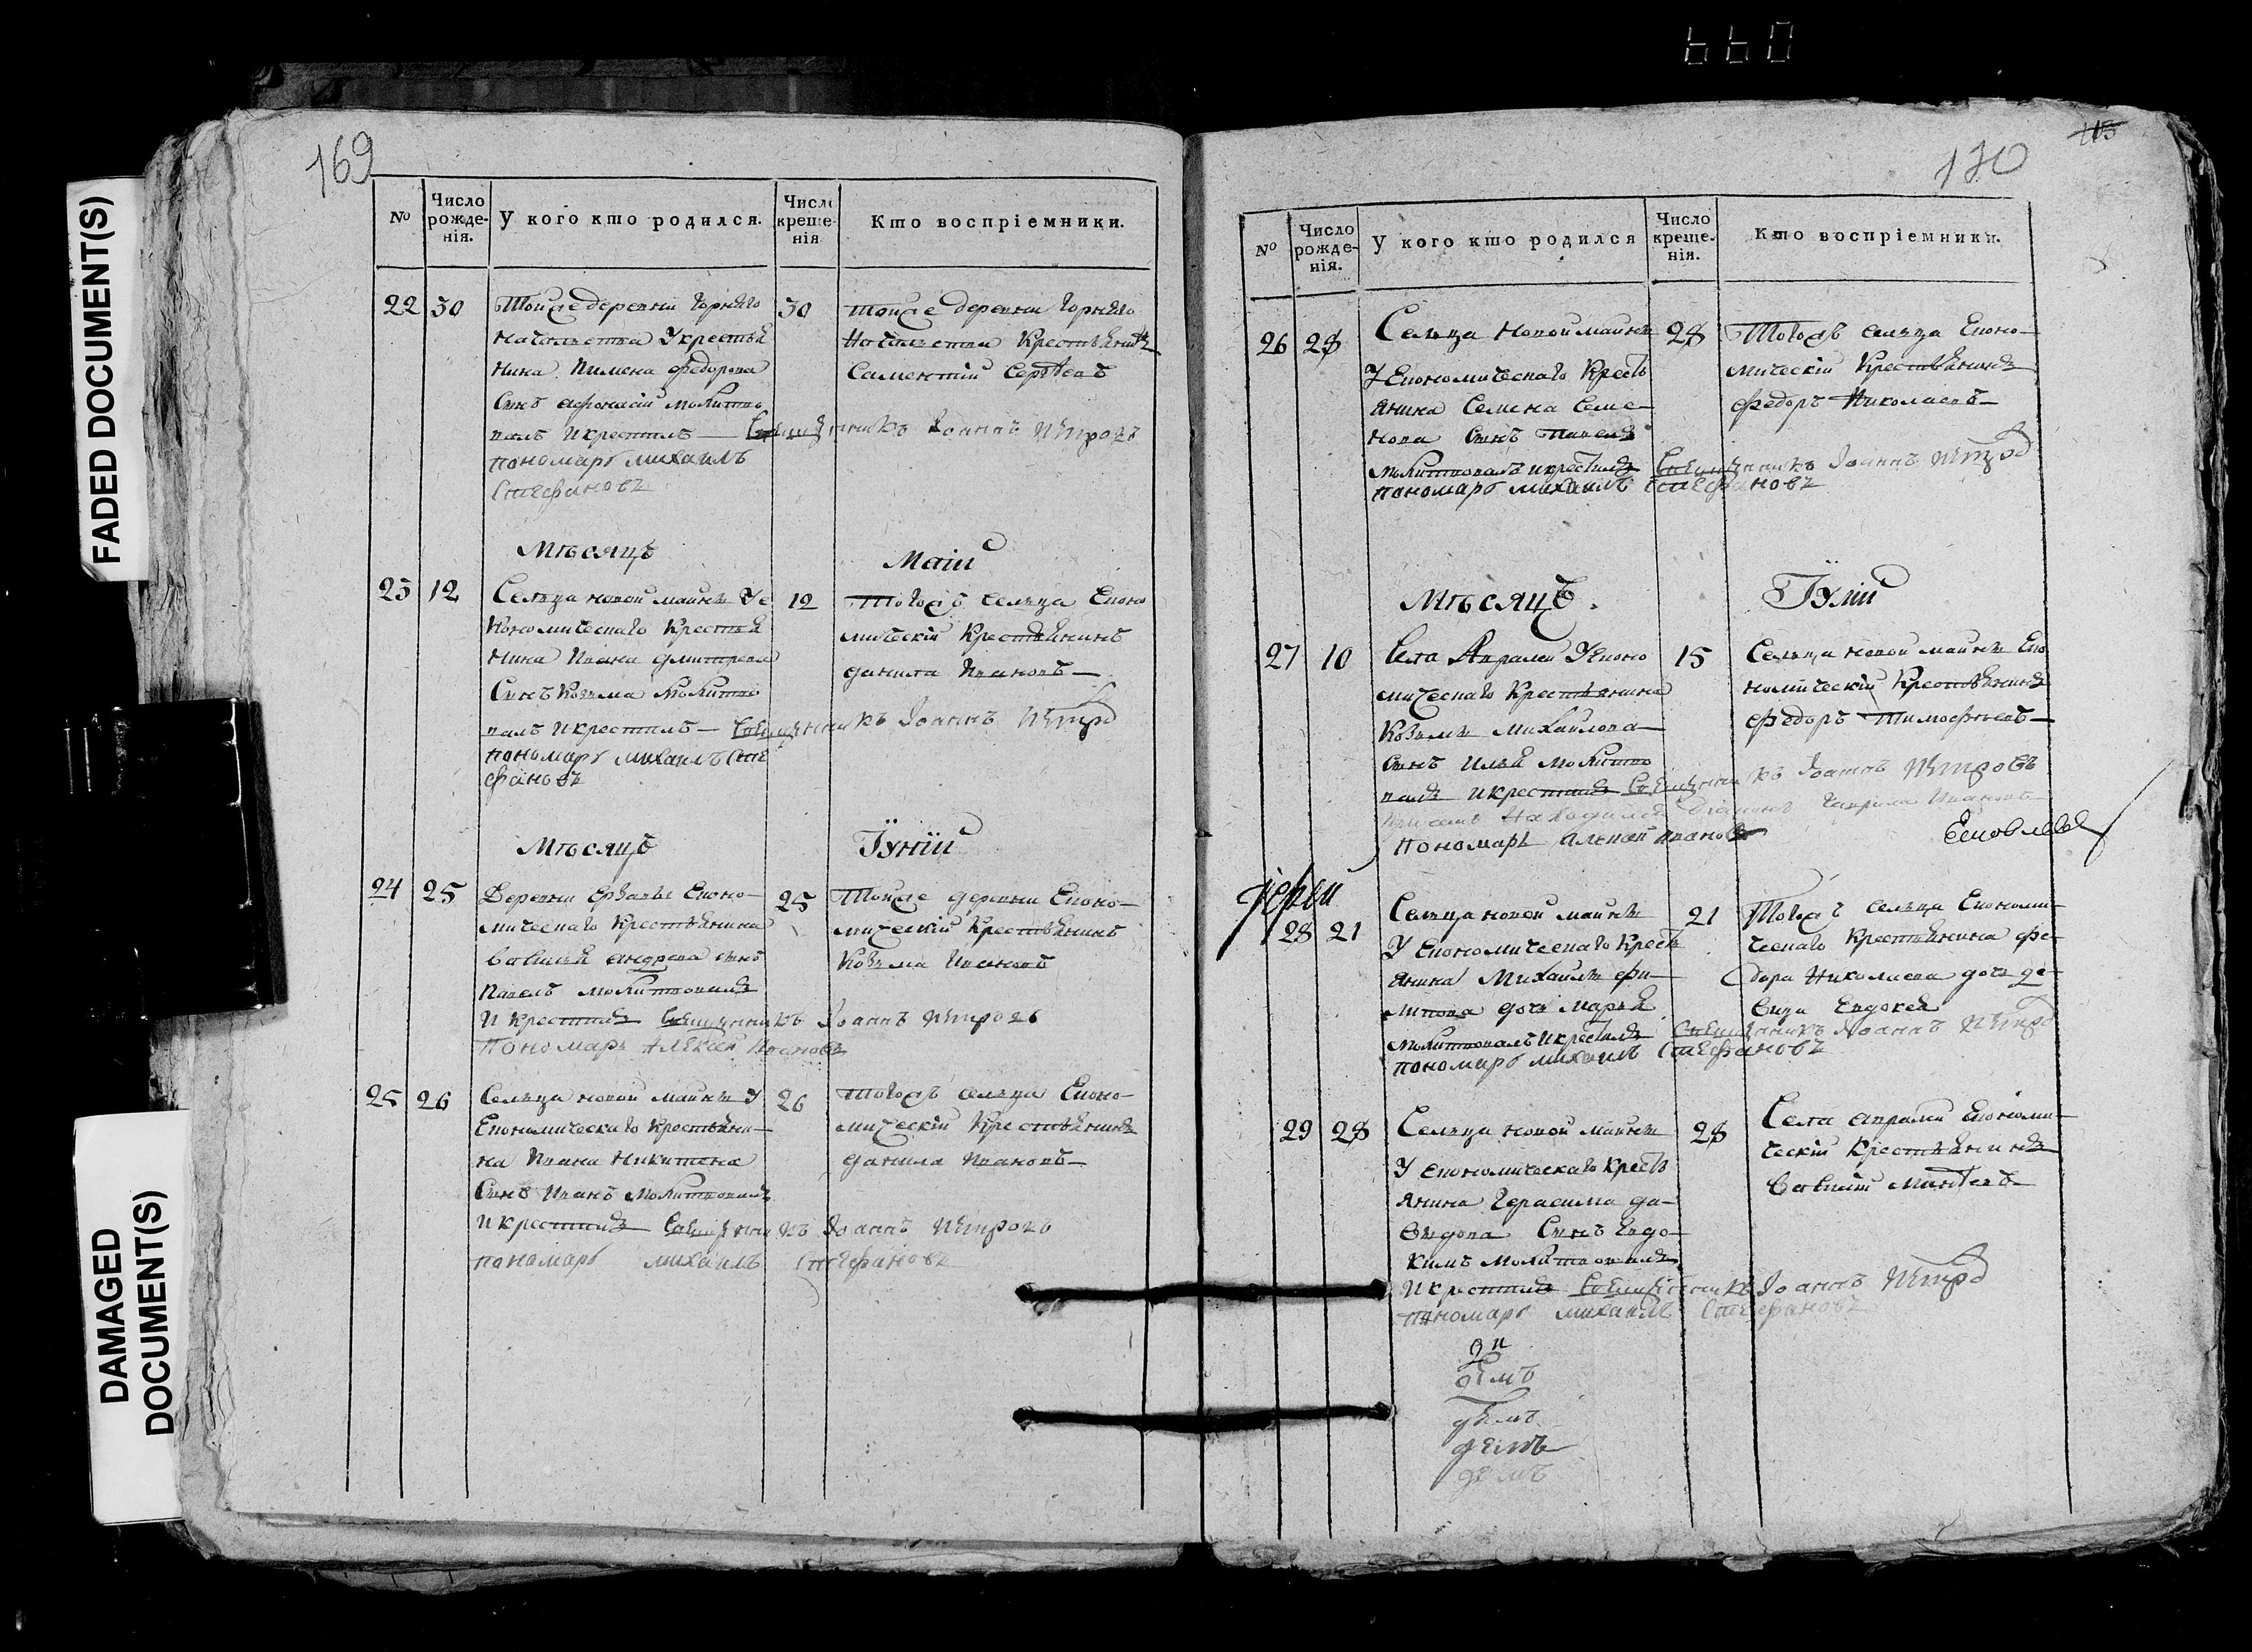 660
FADED DOCUMENT(S)
DAMAGED
DOCUMENT(S)
169
№
Число рожденія.
У кого кто родился.
Число крещенія
Кто воспріемники.
22 30
Тойже деревни Горнаго
начальства У крестья
нина Пимена Федорова
Сынъ Афонасій молитво
валъ и крестилъ — Священникъ Іоаннъ Петровъ
пономарь михаилъ
Стефановъ
30
тойже деревни Горнаго
Начальства Крестьянинъ
Сергѣевъ
Мѣсяцъ
Маій
23 12
Сельца новой майны У е
кономическаго Крестья
нина Ивана Дмитрева
Сынъ Козьма Молитво
валъ и крестилъ — Священникъ Іоаннъ Петро
пономарь михаилъ Сте
фановъ
12
Тогожъ сельца Еконо
мическій Крестьянинъ
Данила Ивановъ —
Мѣсяцъ
Іуній
24 25
Деревни Еконо—
мическаго Крестьянина
Василья Андрева сынъ
Павелъ молитвовалъ
И крестилъ Священникъ Іоаннъ Петровъ
Пономарь Алексей Ивановъ
25
Тойже деревни Еконо—
мическій Крестьянинъ
Козьма Ивановъ
25 26
Сельца новой майны У
Економическаго Крестьяни—
на Ивана Никитена
Сынъ Иванъ молитвовалъ
И крестилъ Священникъ Іоаннъ Петровъ
пономарь михаилъ Стефановъ
26
Тогожъ сельца Еконо—
мическій Крестьянинъ
Данила Ивановъ—
115
170
№
Число рожденія.
У кого кто родился
Число крещенія.
Кто воспріемники.
26 28
Сельца Новой майны
У Економическаго Кресть
янина Семена Семе—
нова Сынъ Павелъ
молитвовалъ и крестилъ Священникъ Іоаннъ Петро
пономарь михаилъ Стефановъ
28
Тогожъ сельца Еконо—
мическій Крестьянинъ
Федоръ Николаевъ—
Мѣсяцъ
Іулій
27 10
Села У Еконо
мическаго Крестьянина
Козьмы Михайлова—
Сынъ Илья молитво
валъ и крестилъ Священникъ Іоаннъ Петровъ
При семъ находился Діаконъ Гаврила Ивановъ
Пономарь Алексей Ивановъ
15
Сельца новой майны Эко
номическій Крестьянинъ
Федоръ Тимофѣевъ—
Іерей
28 21
Сельца новой майны
У Економическаго Кресть
янина Михайлы Фи—
липова дочь Марья
молитвовалъ и крестилъ Священникъ Іоаннъ Петро
пономарь михаилъ Стефановъ
21
Тогожъ сельца Економи—
ческаго Крестьянина Фе—
дора Николаева дочь де—
вица Евдокея
29 28
Сельца новой майны
У Економическаго Кресть
янина Герасима Да—
выдова Сынъ Евдо—
кимъ молитвовалъ
И крестилъ Священникъ Іоаннъ Петро
пономарь михаилъ Стефановъ
28
Села Економи—
ческій Крестьянинъ
Василій